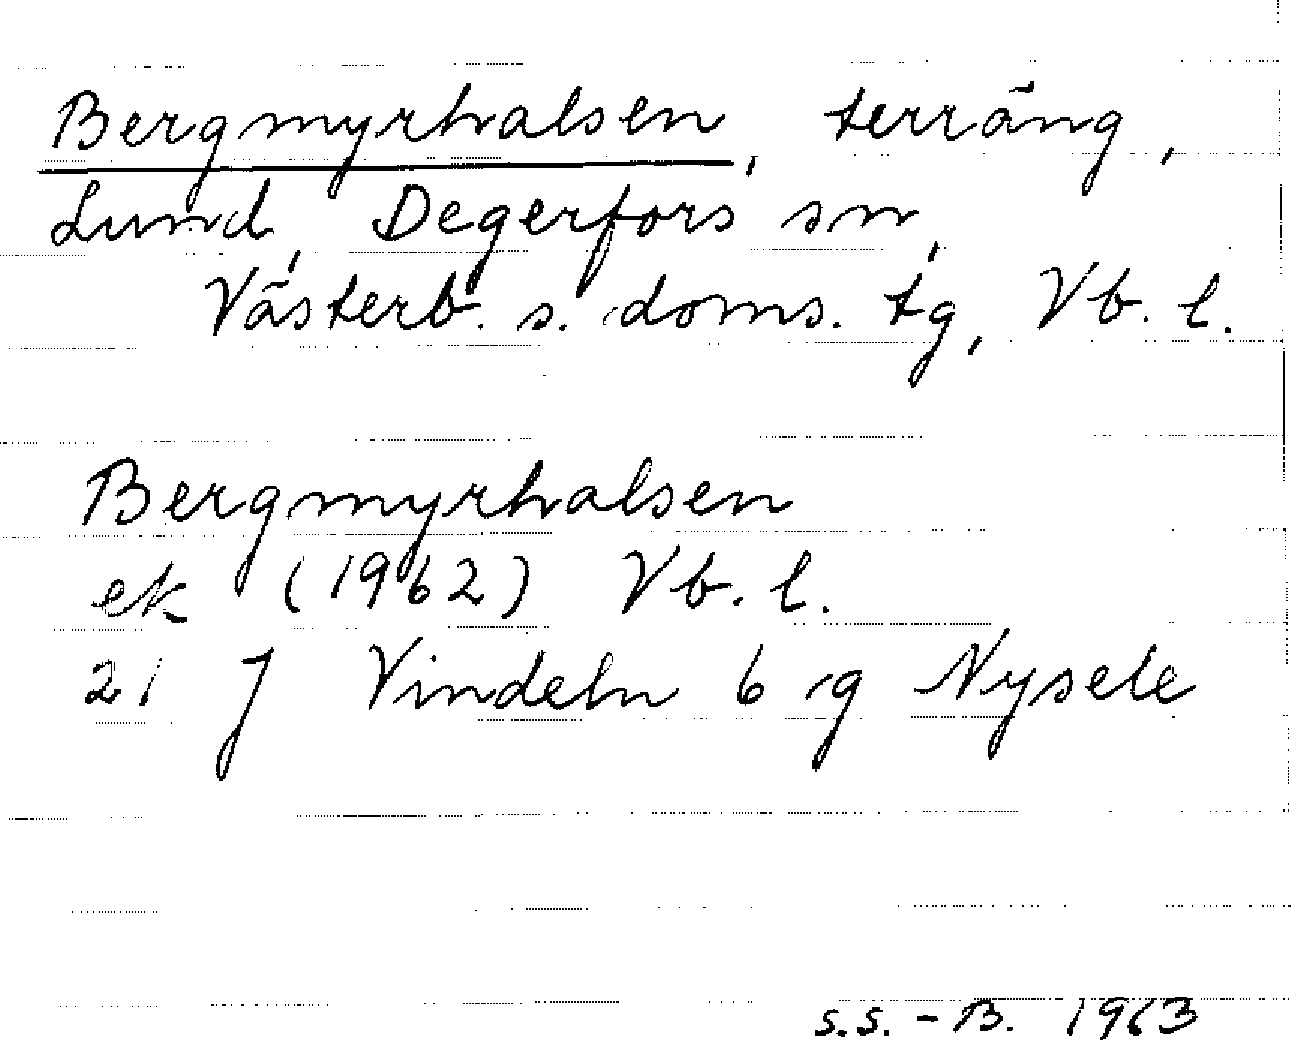 Bergmyrhalsen, terräng,
Lund, Degerfors sn,
Västerb. s. doms. tg, Vb. l.
Bergmyrhalsen
ek (1962) Vb. l.
21 J Vindeln 6 g Nysele
s.s. - B. 1963